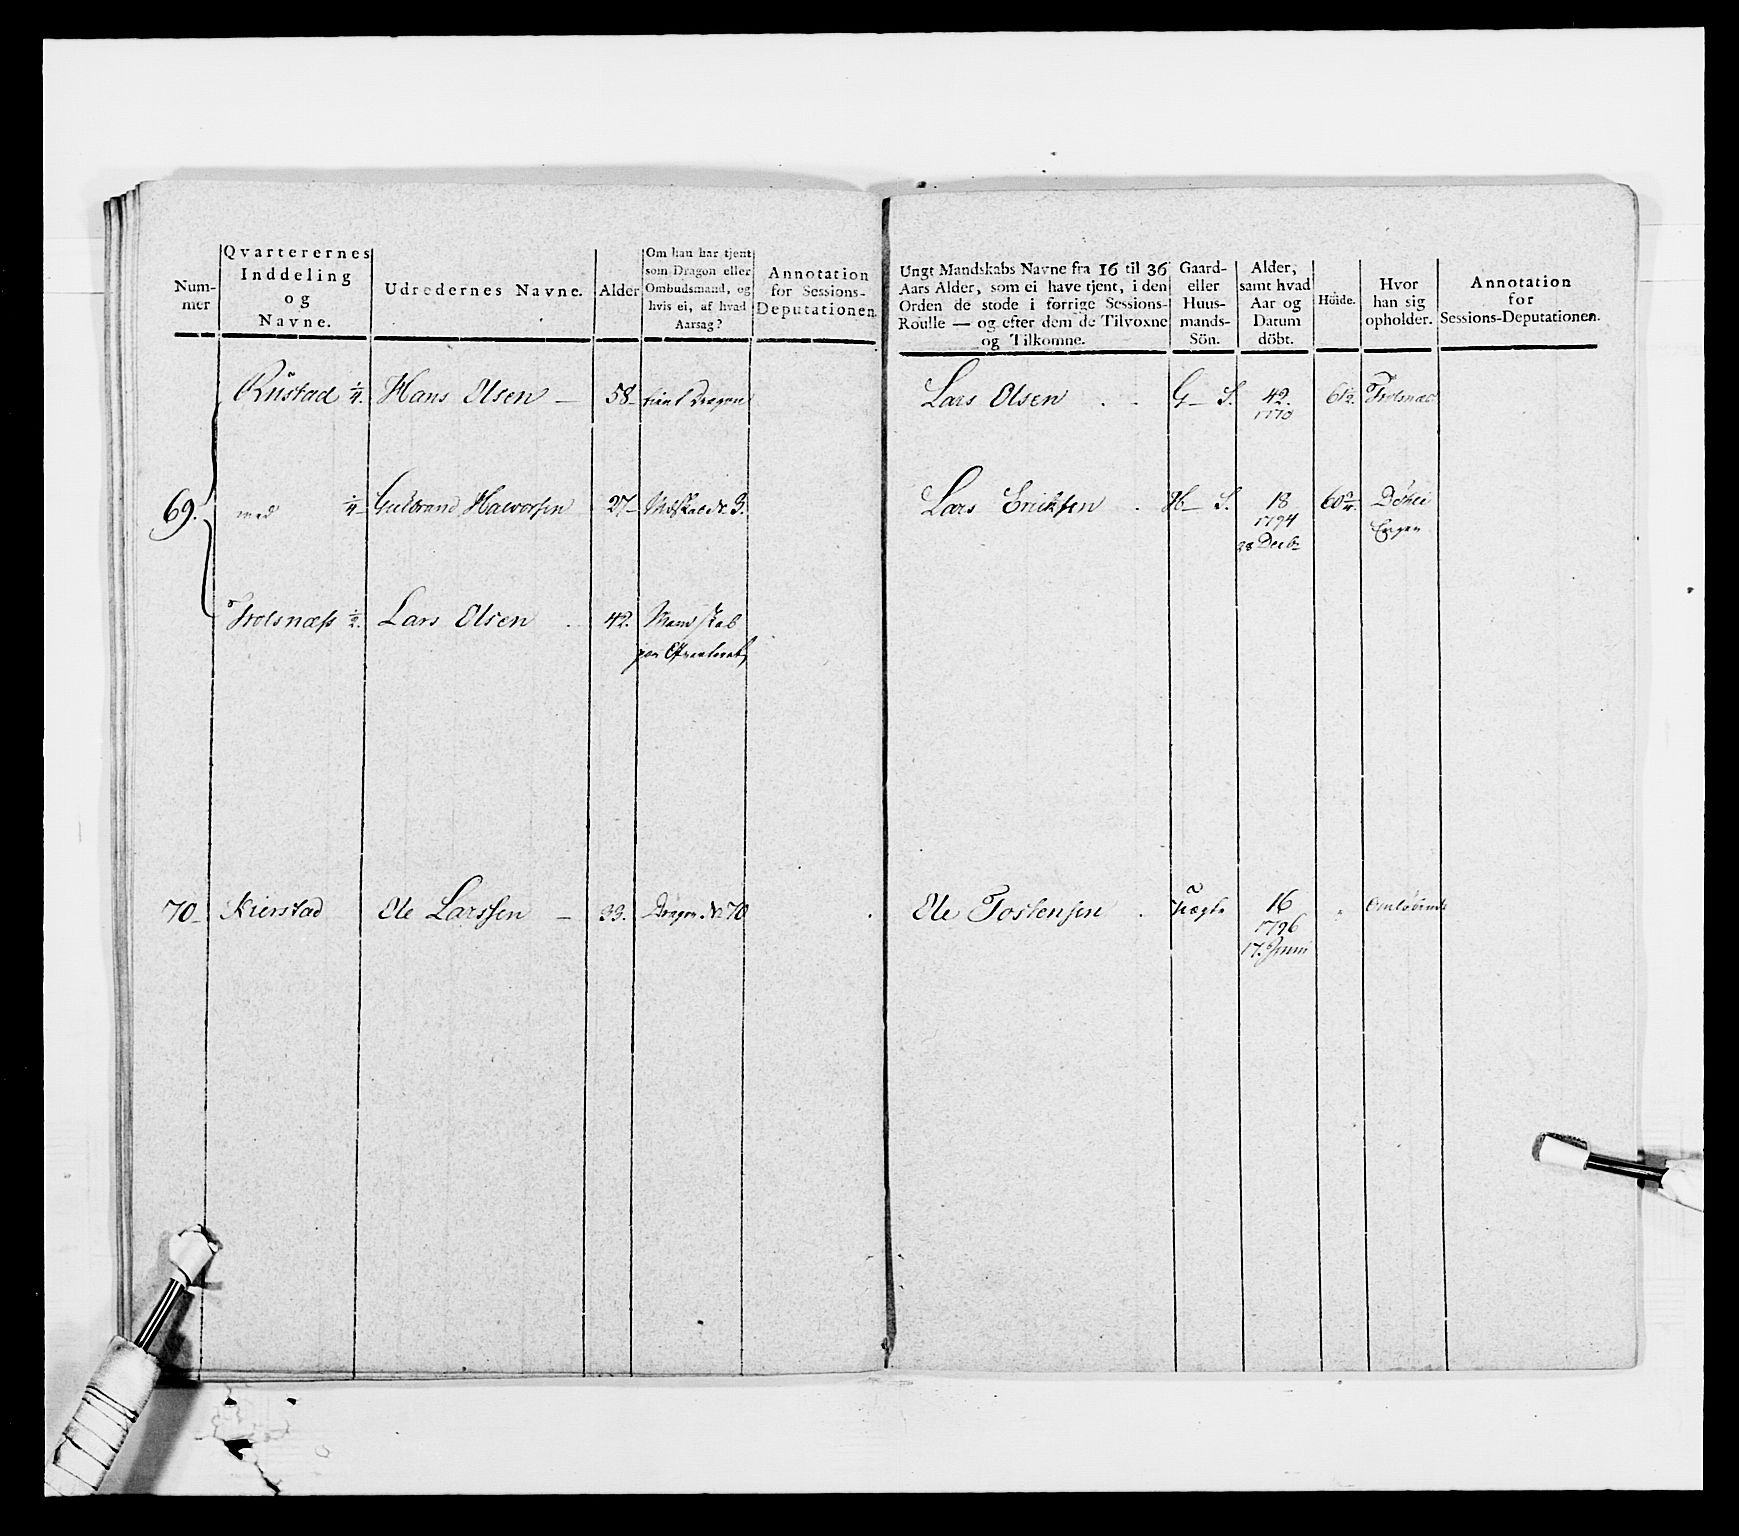 Num-
mer
Qvarterernes
Inddeling
og
Navne.
Udredernes Navne.
Alder
Om han har tjent
som Dragon eller
Ombudsmand, og
hvis ei, af hvad
Aarsag?
Annotation
for Sessions-
Deputationen.
Rustad 1/4. Hans Olsen — 58 tient Dragon
69. med 1/4 Guldbrand Halvorsen 27
Trolsnæss 1/2. Lars Olsen 42. Mandskab
70 Kierstad Ole Larssen — 33. Dragon No 70
Ungt Mandskabs Navne fra 16 til 36
Aars Alder, som ei have tjent, i den
Orden de stode i forrige Sessions-
Roulle — og efter dem de Tilvoxne
og Tilkomne.
Gaard-
eller
Huus-
mands-
Sön.
Alder,
samt hvad
Aar og
Datum
döbt.
Höide.
Hvor
han sig
opholder.
Annotation
for
Sessions-Deputationen.
Lars Olsen G — S. 42. 61 1/2. Trolsnæs
1770
Lars Ericksen H — S. 18 60
1794
28 Decbr
Ole Tostensen 16 Omløbende
1796
17. Juni